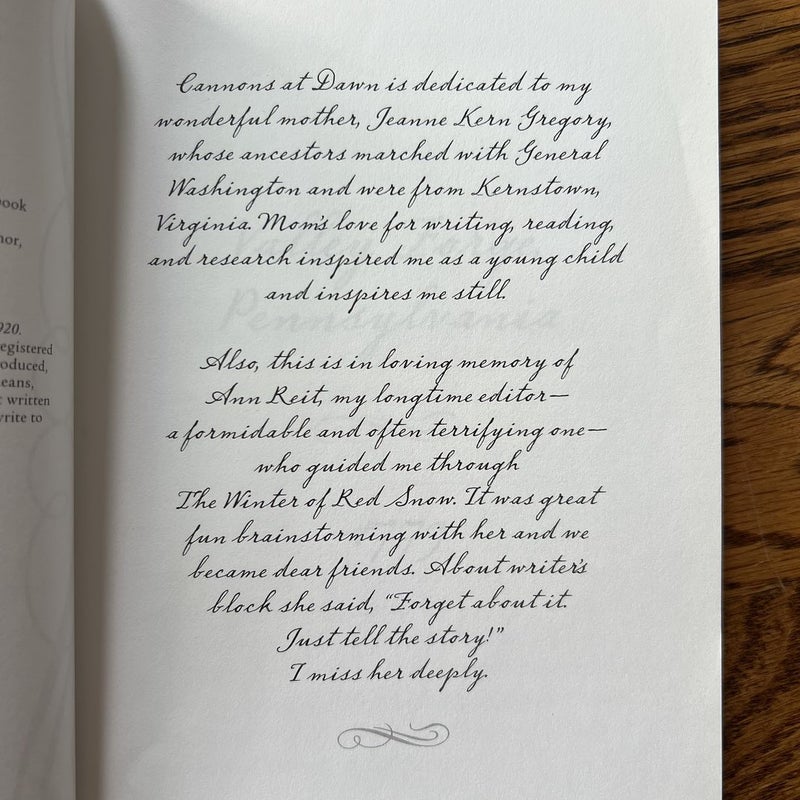 ook
nor,
920.
egistered
oduced,
eans,
written
write to
Cannons at Dawn is dedicated to my
wonderful mother, Jeanne Kern Gregory,
whose ancestors marched with General
Washington and were from Kernstown,
Virginia. Mom's love for writing, reading,
and research inspired me as a young child
and inspires me still.
Also, this is in loving memory of
Ann Reit, my longtime editor—
a formidable and often terrifying one—
who guided me through
The Winter of Red Snow. It was great
fun brainstorming with her and we
became dear friends. About writer's
block she said, “Forget about it.
Just tell the story!”
I miss her deeply.
Pennsylvania